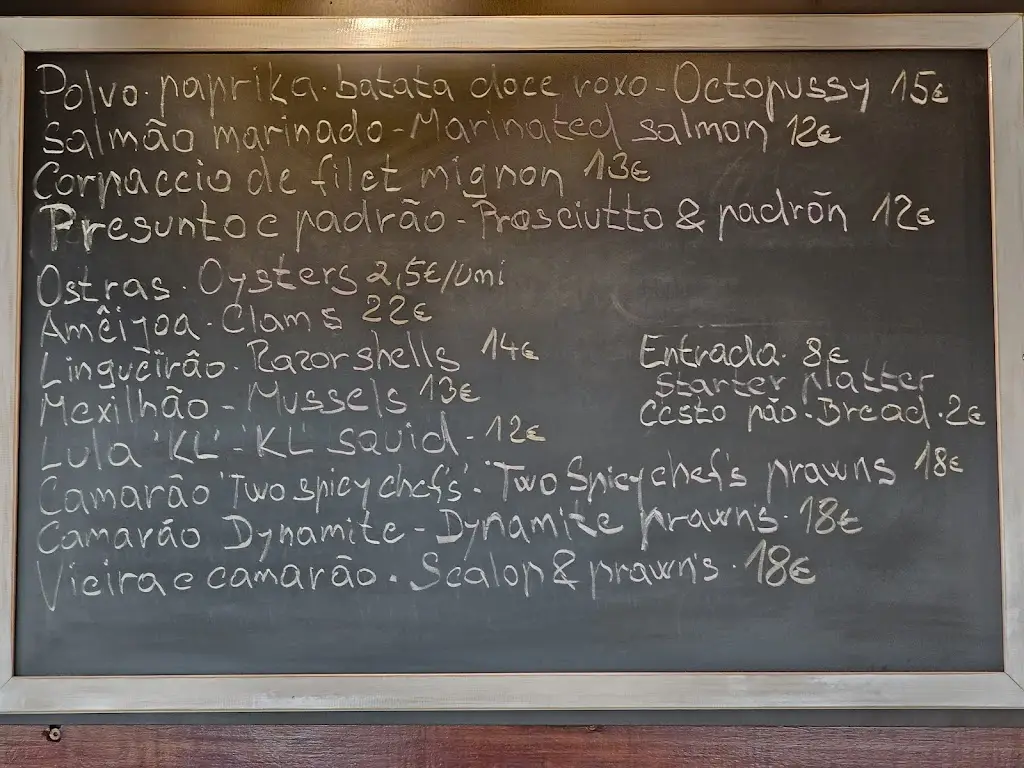 Polvo. paprika. batata doce roxo - Octopussy 15€
Salmão marinado - Marinated salmon 12€
Carpaccio de filet mignon 13€
Presunto e padrão - Prosciutto & padrõn 12€
Ostras. Oysters 2,5€/Uni
Amêijoa. Clams 22€
Lingueirão. Razor shells 14€
Mexilhão - Mussels 13€
Lula 'KL' 'KL' squid - 12€
Camarão 'Two spicy chefs'. 'Two Spicy chef's prawns 18€
Camarão Dynamite - Dynamite prawns. 18€
Vieira e camarão. Scalop & prawns. 18€
Entrada. 8€
Starter platter
Cesto pão. Bread. 2€